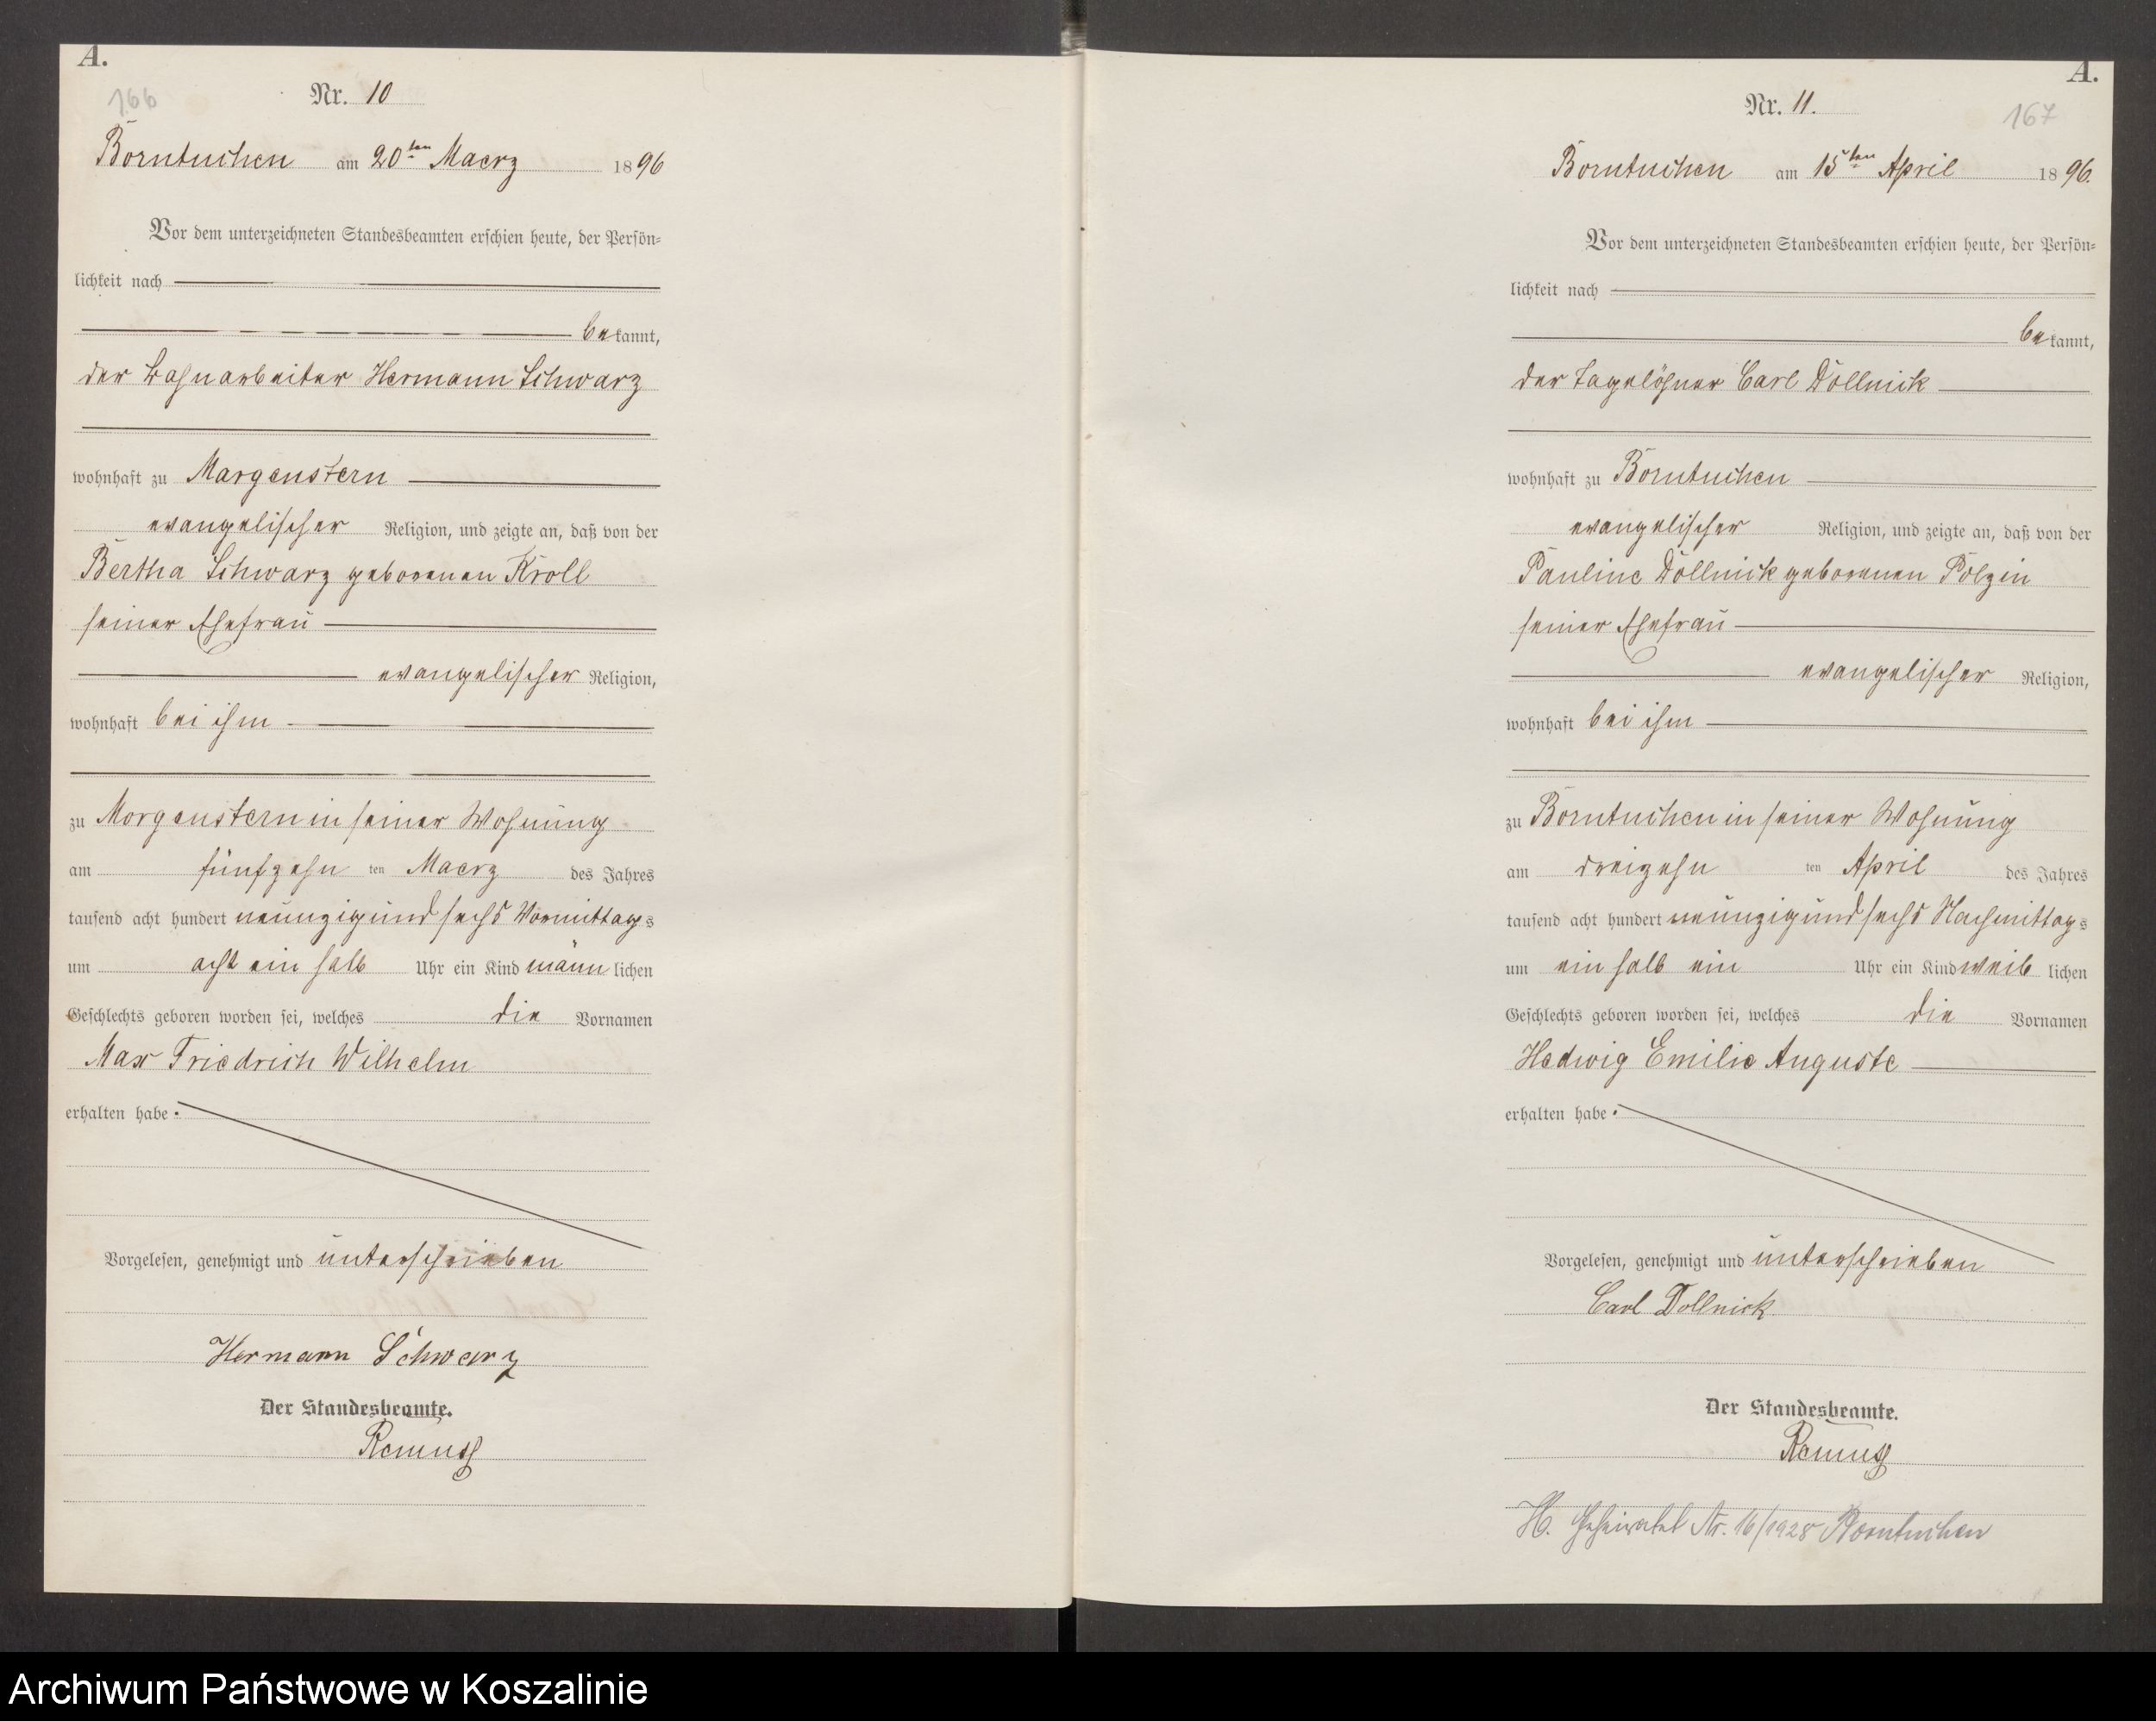 A.
166
Nr. 10
Borntuchen am 20ten Maerz 1896
Vor dem unterzeichneten Standesbeamten erschien heute, der Persön=
lichkeit nach
bekannt,
der Bahnarbeiter Hermann Schwarz
wohnhaft zu Margenstern
evangelischer Religion, und zeigte an, daß von der
Bertha Schwarz geborenen Kroll
seiner Ehefrau
evangelischer Religion,
wohnhaft bei ihm
zu Morgenstern in seiner Wohnung
am fünfzehn ten Maerz des Jahres
tausend acht hundert neunzig und sechs Vormittags
um acht ein halb Uhr ein Kind männlichen
Geschlechts geboren worden sei, welches die Vornamen
Max Friedrich Wilhelm
erhalten habe.
Vorgelesen, genehmigt und unterschrieben
Hermann Schwarz
Der Standesbeamte.
Remus
A.
167
Nr. 11.
Borntuchen am 15ten April 1896.
Vor dem unterzeichneten Standesbeamten erschien heute, der Persön=
lichkeit nach
bekannt,
der Tagelöhner Carl Döllnick
wohnhaft zu Borntuchen
evangelischer Religion, und zeigte an, daß von der
Pauline Döllnick geborenen Polzin
seiner Ehefrau
evangelischer Religion,
wohnhaft bei ihm
zu Borntuchen in seiner Wohnung
am dreizehn ten April des Jahres
tausend acht hundert neunzig und sechs Nachmittags
um ein halb ein Uhr ein Kind weiblichen
Geschlechts geboren worden sei, welches die Vornamen
Hedwig Emilie Auguste
erhalten habe.
Vorgelesen, genehmigt und unterschrieben
Carl Dollnick
Der Standesbeamte.
Remus
H. Geheiratet Nr. 16/1928 Borntuchen
Archiwum Państwowe w Koszalinie